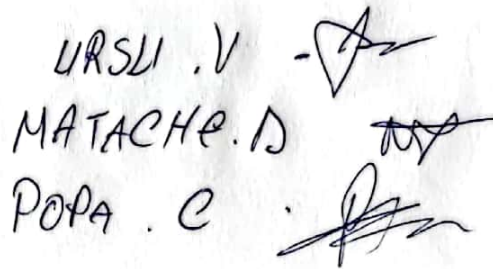 URSU . V -
MATACHE . D
POPA . C .